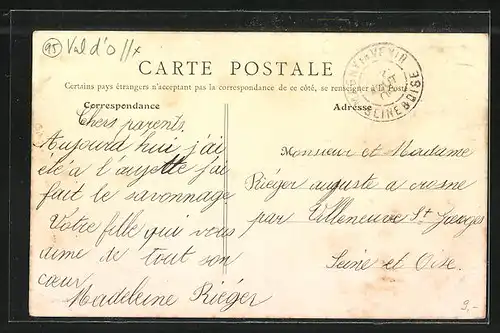 95 Val d'O //x
CARTE POSTALE
Certains pays étrangers n'acceptent pas la correspondance de ce côté, se renseigner à la Poste
Correspondance
Chers parents
Aujourd hui j'ai
été a l'aujette j'ai
fait le savonnage
Votre fille qui vous
aime de tout son
cœur
Madeleine Riéger
Adresse
Monsieur et Madame
Riéger auguste a crosne
par Villeneuve St Georges
Seine et Oise.
SEINE & OISE
9,-